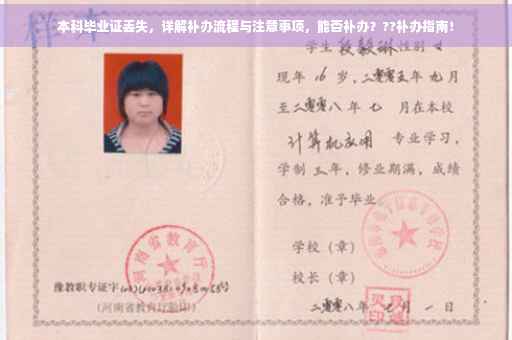 本科毕业证丢失，详解补办流程与注意事项，能否补办？??补办指南！
样本
学生 段毅琳 性别 女
现年 16 岁，二零零五年 九月
至二零零八年 七 月在本校
计算机应用 专业学习，
学制 三年，修业期满，成绩
合格，准予毕业
学校（章）
校长（章）
二零零八年 月 一 日
河南省教育厅
豫教职专证字
（河南省教育厅验印）